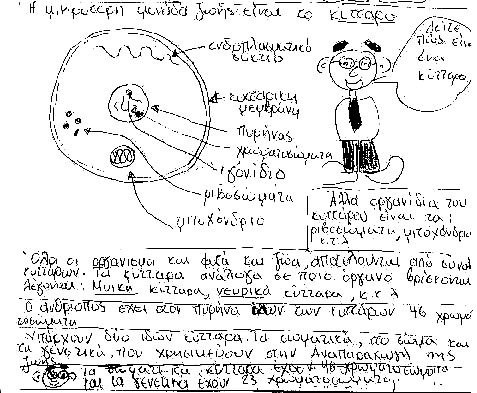 Η μικρότερη μονάδα ζωής είναι το κύτταρο
ενδοπλασματικό
δίκτυο
μεμβράνη
πυρήνας
χρωματοσώματα
γονίδιο
ριβοσώματα
μιτοχόνδριο
Δείτε
πώς είναι
ένα
κύτταρο
Άλλα οργανίδια του
κυττάρου είναι τα
ριβοσώματα, μιτοχόνδρια
κ.τ.λ
Όλοι οι οργανισμοί και φυτά και ζώα, αποτελούνται από
κυττάρων. Τα κύτταρα ανάλογα σε ποιο όργανο βρίσκονται
λέγονται: Μυϊκά κύτταρα, νευρικά κύτταρα, κ.τ.λ
Ο άνθρωπος έχει στον πυρήνα των κυττάρων 46 χρωμο
σώματα
Υπάρχουν δύο ειδών κύτταρα. Τα σωματικά, το σώμα και
τα γενετικά, που χρησιμεύουν στην Αναπαραγωγή της
ζωής
Τα σωματικά κύτταρα έχουν 46 χρωματοσώματα
και τα γενετικά έχουν 23 χρωματοσώματα.